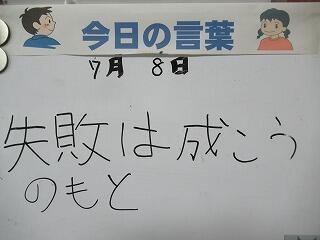 今日の言葉
7月 8日
失敗は成こう
のもと